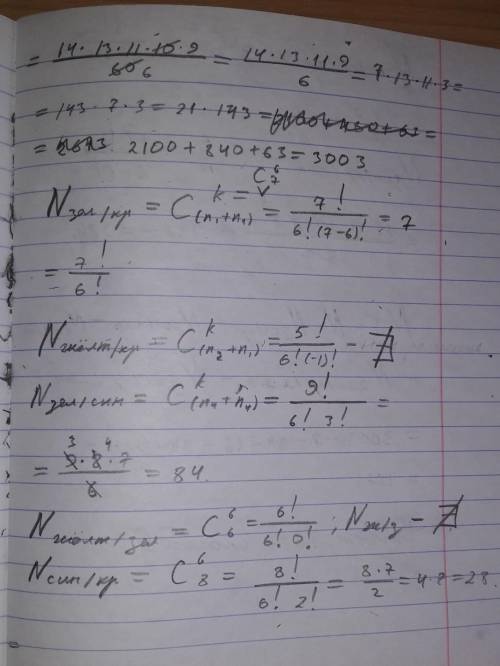 = 14·13·11·10·9 / 60 6 = 14·13·11·9 / 6 = 7·13·11·3 =
= 143·7·3 = 21·143 =
= 2100+840+63 = 3003
C_7^6
N зел/кр = C_(n₁+n₄)^k = 7! / 6!(7-6)! = 7
= 7! / 6!
N жёлт/кр = C_(n₂+n₁)^k = 5! / 6!(-1)! - ∄
N зел/син = C_(n₄+n₄)^k = 9! / 6! 3! =
= 9·8·7 / 6 = 84.
3 4
N жёлт/зел = C_6^6 = 6! / 6! 0! ; N ж/з - ∄
N син/кр = C_8^6 = 8! / 6! 2! = 8·7 / 2 = 4·7 = 28.